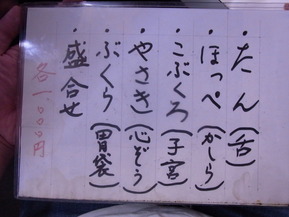 ・たん(舌)
・ほっぺ(かしら)
・こぶくろ(子宮)
・やさき(心ぞう)
・ぶくら(胃袋)
・盛合せ
各一、〇〇〇円